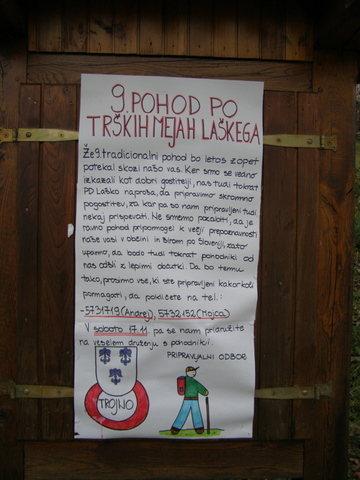 9. POHOD PO
TRŠKIH MEJAH LAŠKEGA
Že 9. tradicionalni pohod bo letos zopet
potekal skozi našo vas. Ker smo se vedno
izkazali kot dobri gostitelji, nas tudi tokrat
PD Laško naproša, da pripravimo skromno
pogostitev, za kar pa so nam pripravljeni tudi
nekaj prispevati. Ne smemo pozabiti, da je
ravno pohod pripomogel k večji prepoznavnosti
naše vasi v občini in širom po Sloveniji, zato
upamo, da bodo tudi tokrat pohodniki od
nas odšli z lepimi občutki. Da bo temu
tako, prosimo vse, ki ste pripravljeni kakorkoli
pomagati, da pokličete na tel.:
- 5731719 (Andrej), 5732152 (Mojca)
V soboto 17.11. pa se nam pridružite
na veselem druženju s pohodniki.
PRIPRAVLJALNI ODBOR
TROJNO